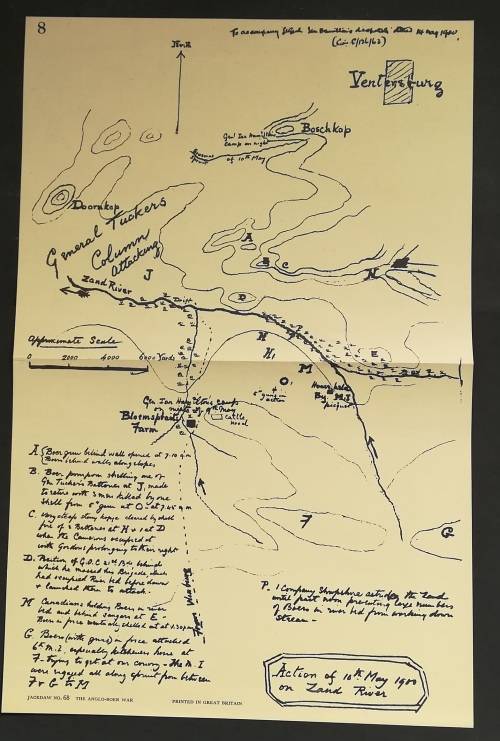 8
To accompany
(Cin C/136/63)
North
Ventersburg
Boschkop
Genl Ian Hamiltons
camp on night
of 10th May
Doornkop
General Tuckers
Column
Attacking
A
B C
N
J
Zand River
Drift
D
H
H1
E
M
Approximate Scale
0 2000 4000 6000 Yards
O
5" gun in
action
House held
By M.I.
picquet
Gen Ian Hamiltons camp
on night of 9th May
Bloemspruit
Farm
cattle
kraal
A Boer gun behind wall opened at 7.10 a.m
Boers behind walls along slopes
B. Boer pompom shelling one of
Gen Tucker's Batteries at J, made
to retire with 3 men killed by one
shell from 5" gun at O at 7.45 a.m
C. Very steep stony kopje cleared by shell
fire of 2 Batteries at H + 1 at D
when the Camerons occupied it
with Gordons prolonging to their right
D. Position of G.O.C 21st Bde behind
which he massed his Brigade, which
had occupied River bed before dawn
+ launched them to attack.
H Canadians holding Boers in river
bed and behind sangars at E -
Boers in force eventually shelled out at 1.30 p.m
G Boers (with guns) in force attacked
6th M.I., especially Kitcheners horse at
F - trying to get at our convoy - The M.I
were engaged all along spruit from between
F & G to M
F
G
P. 1 Company Shropshire across the Zand
until past noon preventing large numbers
of Boers in river bed from working down
Stream -
From Winburg
Action of 10th May 1900
on Zand River
JACKDAW NO. 68 THE ANGLO-BOER WAR
PRINTED IN GREAT BRITAIN